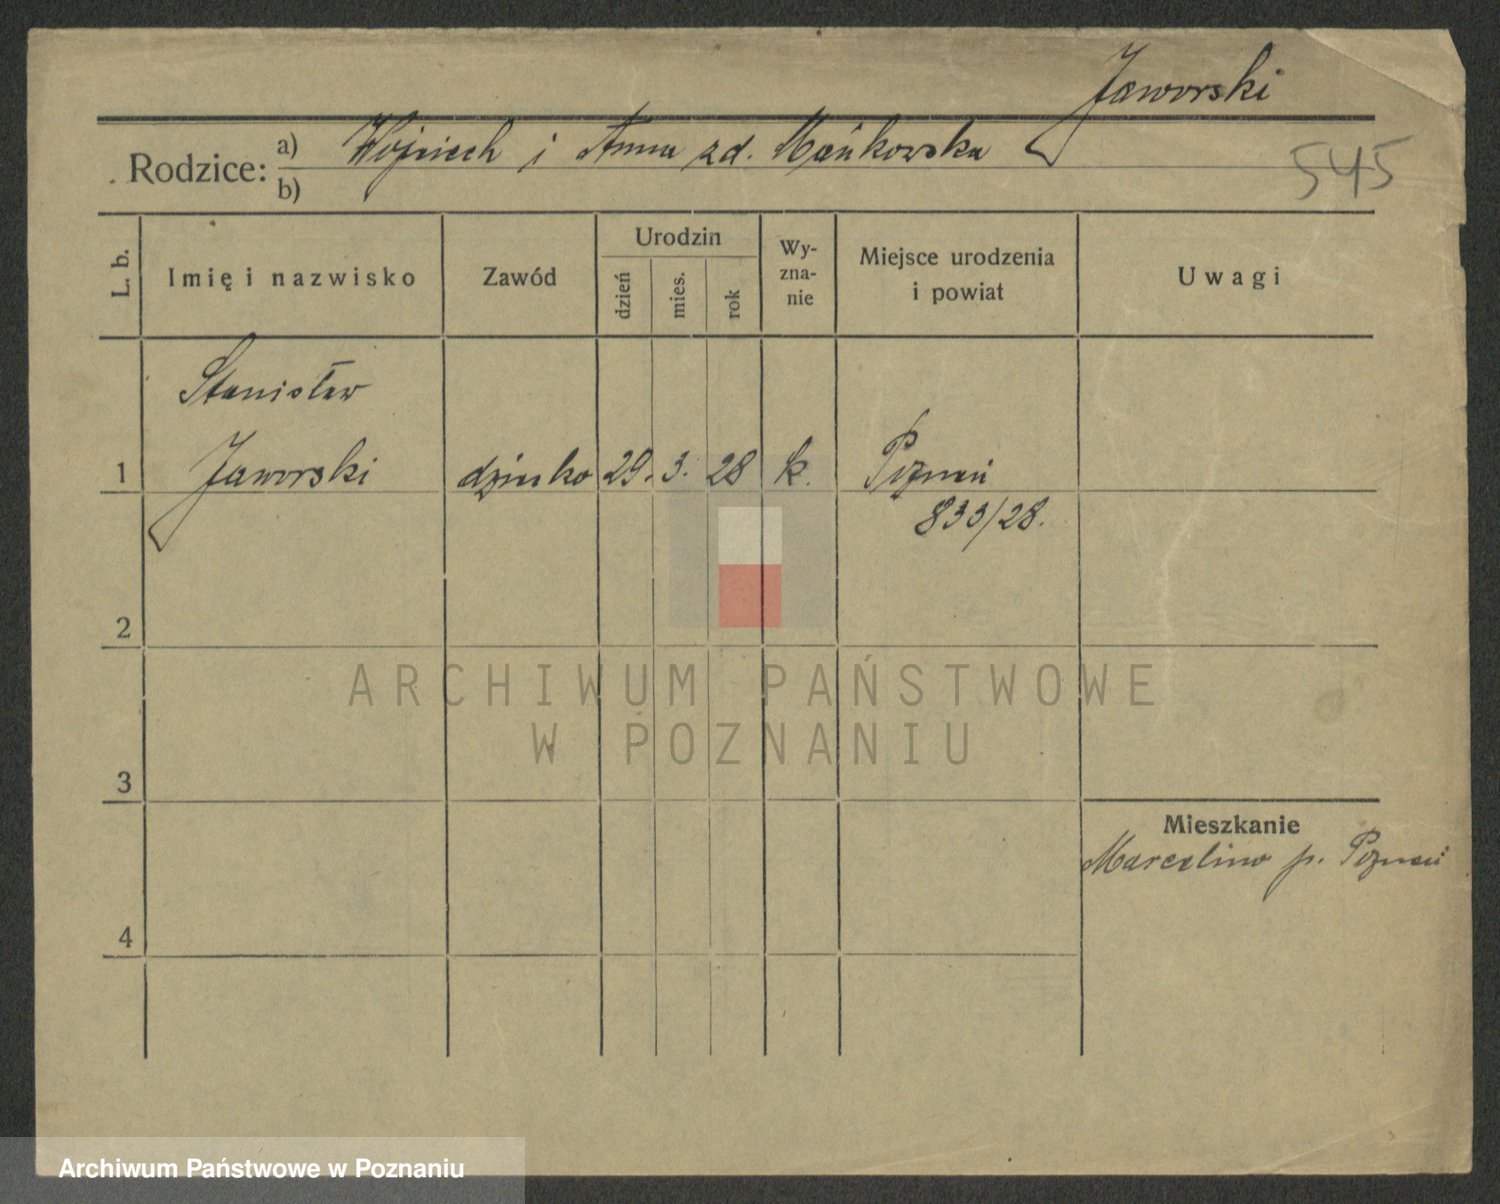 Jaworski
Rodzice: a) Wojciech i Anna zd. Mańkowska
b)
545
L. b.
Imię i nazwisko
Zawód
Urodzin
dzień
mies.
rok
Wy-
zna-
nie
Miejsce urodzenia
i powiat
Uwagi
Stanisław
1 Jaworski dziecko 29. 3. 28 k. Poznań
833/28.
2
3
4
Mieszkanie
Marcelino p. Poznań
ARCHIWUM PAŃSTWOWE
W POZNANIU
Archiwum Państwowe w Poznaniu